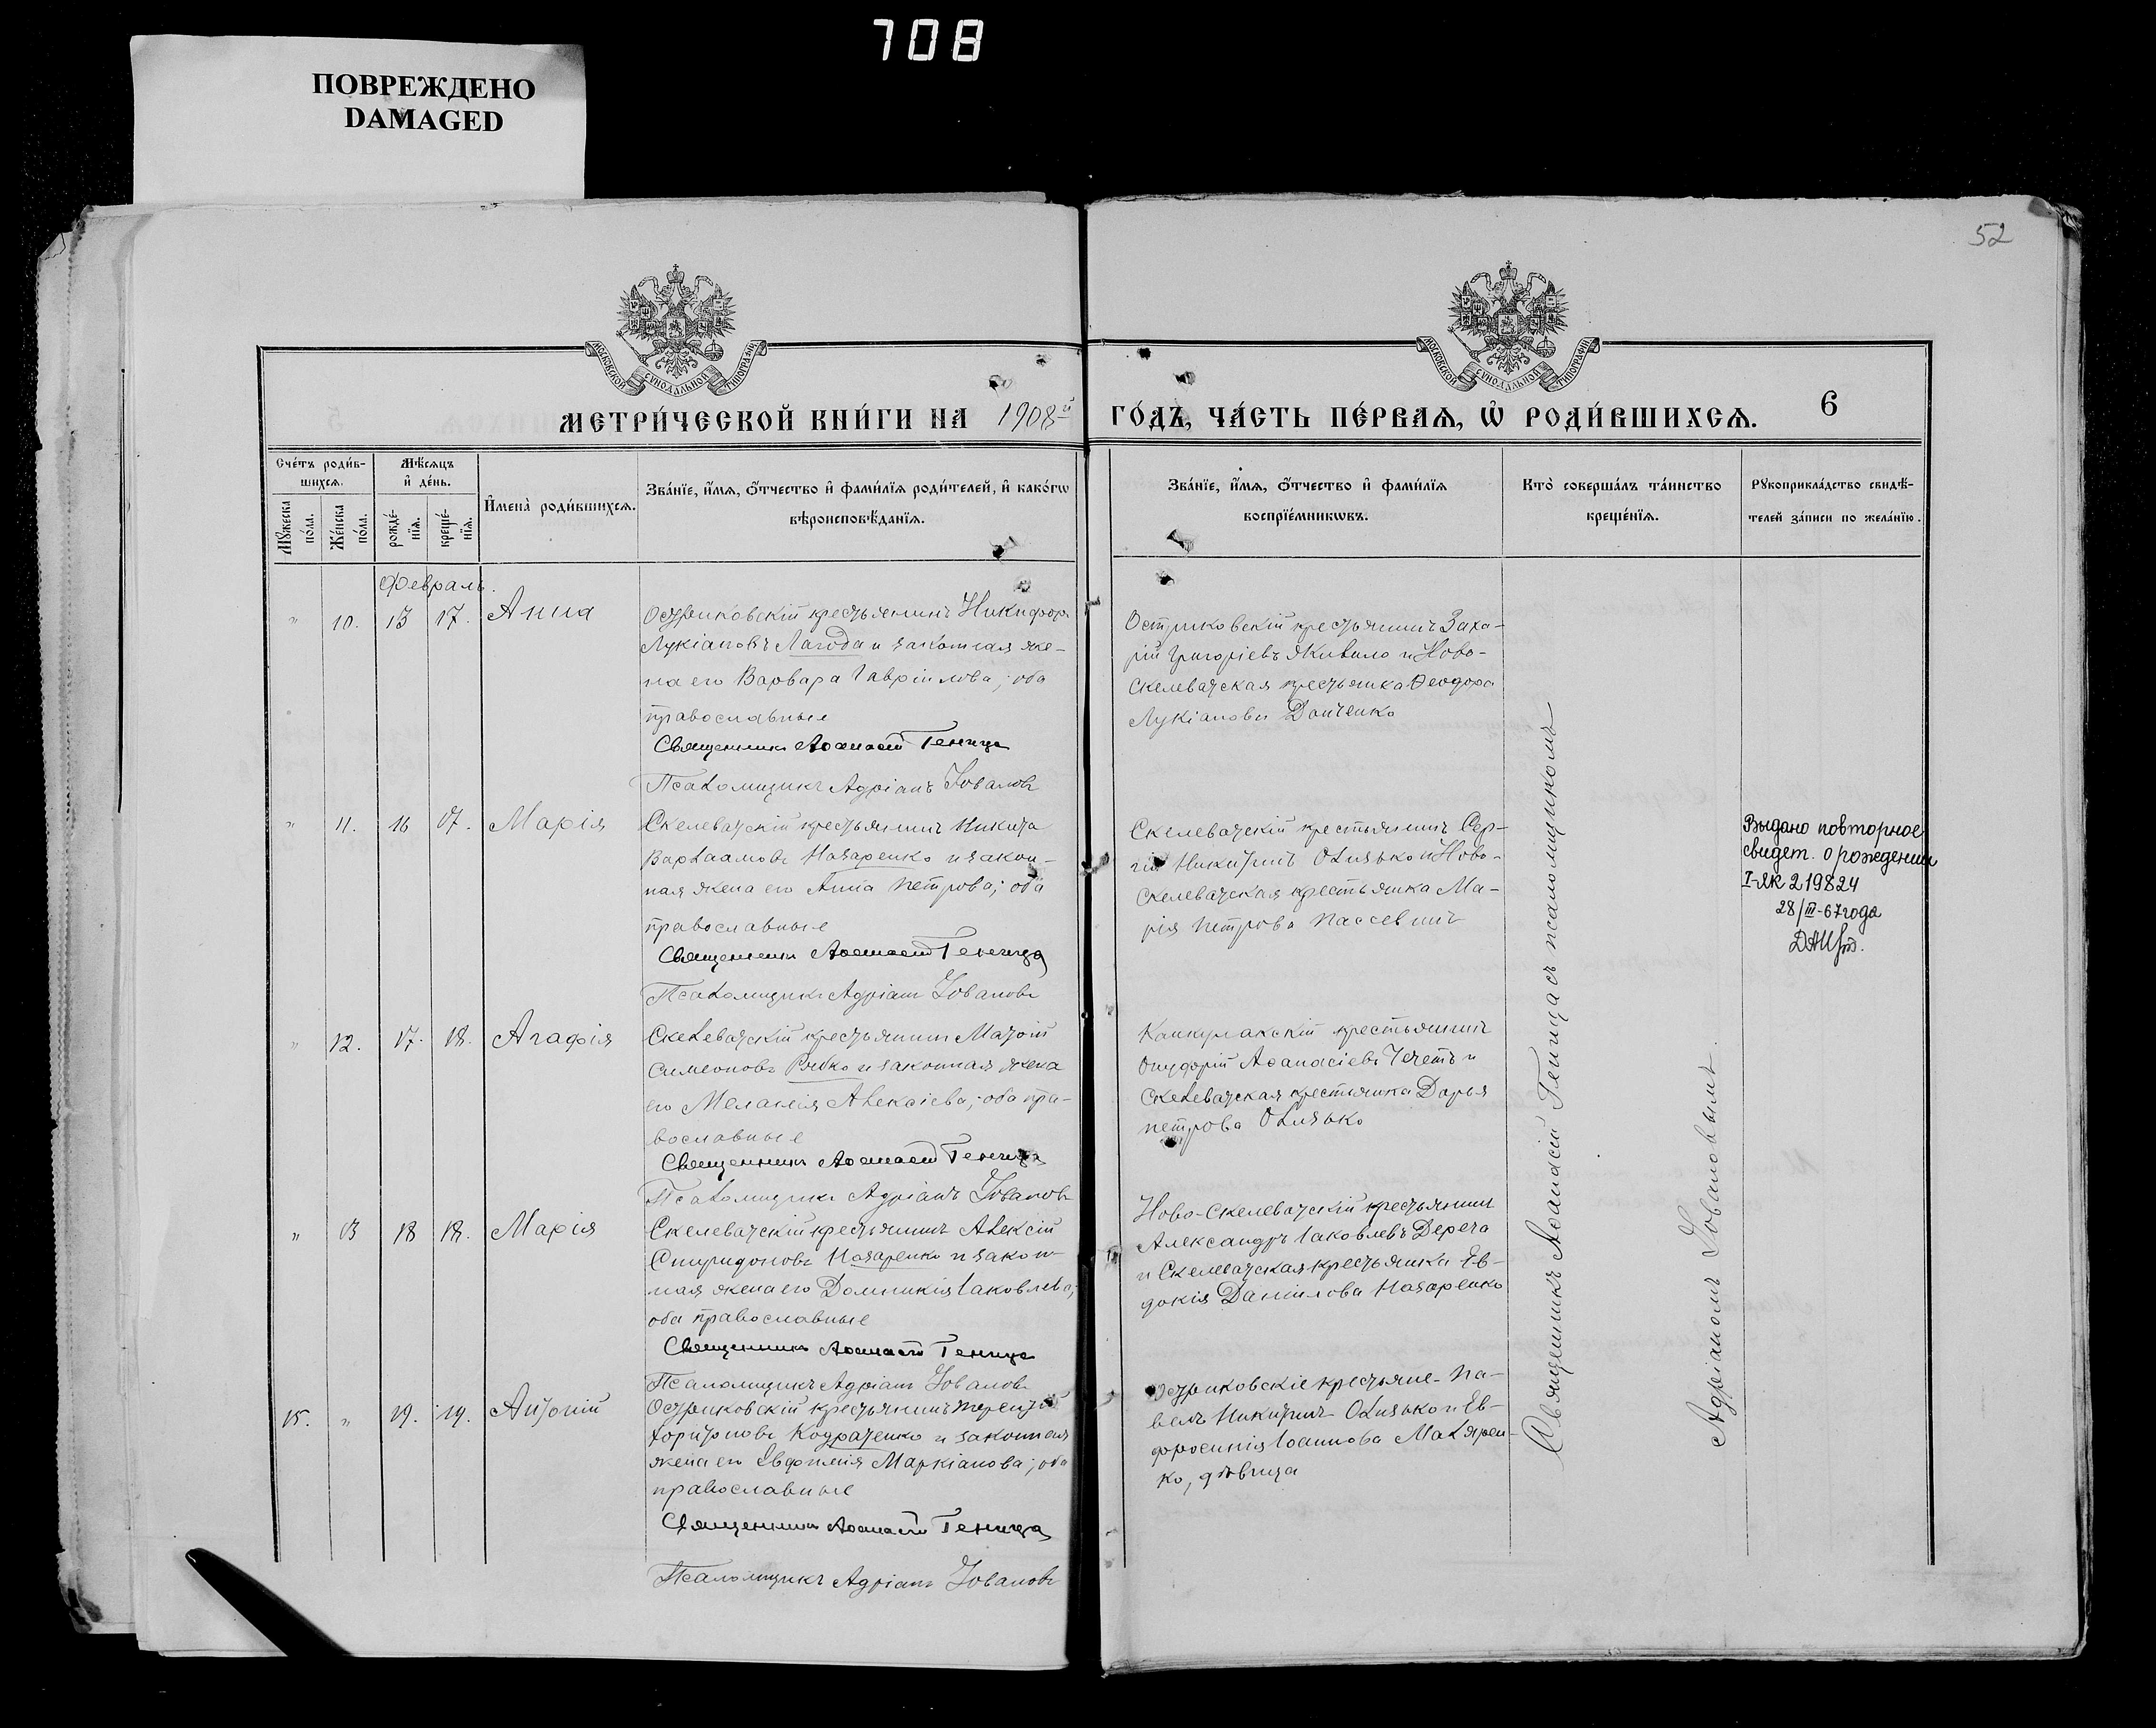 708
ПОВРЕЖДЕНО
DAMAGED
52
МОСКОВСКОЙ СУНОДАЛЬНОЙ ТИПОГРАФІИ
МОСКОВСКОЙ СУНОДАЛЬНОЙ ТИПОГРАФІИ
МЕТРИ́ЧЕСКОЙ КНИ́ГИ НА 1908й
ГО́ДЪ, ЧА́СТЬ ПЕ́РВАѦ, Ѡ҆ РОДИ́ВШИХСѦ. 6
Сче́тъ роди́в-
шихсѧ.
Мꙋ́жеска по́ла.
Же́нска по́ла.
Мѣ́сѧцъ
и҆ де́нь.
рожде́-
нїѧ.
креще́-
нїѧ.
И҆мена̀ роди́вшихсѧ.
Зва́нїе, и҆́мѧ, ѻ҆́тчество и҆ фами́лїѧ роди́телей, и҆ како́гѡ
вѣроисповѣ́данїѧ.
Зва́нїе, и҆́мѧ, ѻ҆́тчество и҆ фами́лїѧ
воспрїе́мникѡвъ.
Кто̀ соверша́лъ та́инство
креще́нїѧ.
Рꙋкоприкла́дство свидѣ́-
телей за́писи по жела́нїю.
Февраль.
" 10. 13 17. Анна
Остриковскій крестьянинъ Никифоръ
Лукіановъ Лагода и законная же-
на его Варвара Гавріилова; оба
православные
Священникъ Аѳанасій Геница
Псаломщикъ Адріанъ
Остриковскій крестьянинъ Заха-
рій Григоріевъ и Ново-
Скелеватская крестьянка Ѳеодора
Лукіанова Донченко
" 11. 16 17. Марія
Скелеватскій крестьянинъ Никита
Варлаамовъ Назаренко и закон-
ная жена его Анна Петрова; оба
православные
Священникъ Аѳанасій Геница
Псаломщикъ Адріанъ
Скелеватскій крестьянинъ Сер-
гій Никитинъ Олизько и Ново-
Скелеватская крестьянка Ма-
рія Петрова
Выдано повторное
свидет. о рождении
I-ЯК 219824
28/III-67 года
" 12. 17. 18. Агафія
Скелеватскій крестьянинъ Матѳій
Симеоновъ Рыбко и законная жена
его Меланія Алексіева; оба пра-
вославные
Священникъ Аѳанасій Геница
Псаломщикъ Адріанъ
крестьянинъ
Онуфрій Аѳанасіевъ и
Скелеватская крестьянка Дарья
Петрова Олизько
" 13 18 18. Марія
Скелеватскій крестьянинъ Алексій
Спиридоновъ Назаренко и закон-
ная жена его Домникія Іаковлева;
оба православные
Священникъ Аѳанасій Геница
Псаломщикъ Адріанъ
Ново-Скелеватскій крестьянинъ
Александръ Іаковлевъ Дереча
и Скелеватская крестьянка Ев-
докія Даніилова Назаренко
15. " 19. 19. Антоній
Остриковскій крестьянинъ Терентій
Харитоновъ Кодратенко и законная
жена его Евфимія Маркіанова; оба
православные
Священникъ Аѳанасій Геница
Псаломщикъ Адріанъ
Остриковскіе крестьяне Па-
велъ Никитинъ Олизько и Ев-
фросинія Іоаннова Маляренко-
ко, дѣвица
Священникъ Аѳанасій Геница съ псаломщикомъ
Адріаномъ